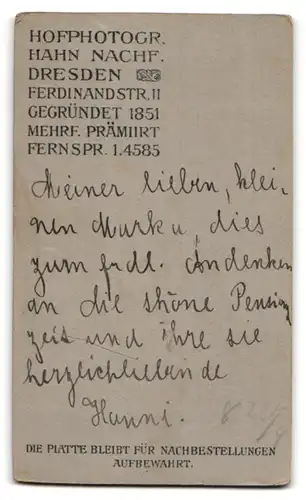 HOFPHOTOGR.
HAHN NACHF.
DRESDEN
FERDINANDSTR. 11
GEGRÜNDET 1851
MEHRF. PRÄMIIRT
FERNSPR. 1.4585
Meiner lieben, klei-
nen Marku, dies
zum frdl. Andenken
an die shöne Pension
zeit und ihre sie
herzlichliebende
Hanni.
DIE PLATTE BLEIBT FÜR NACHBESTELLUNGEN
AUFBEWAHRT.